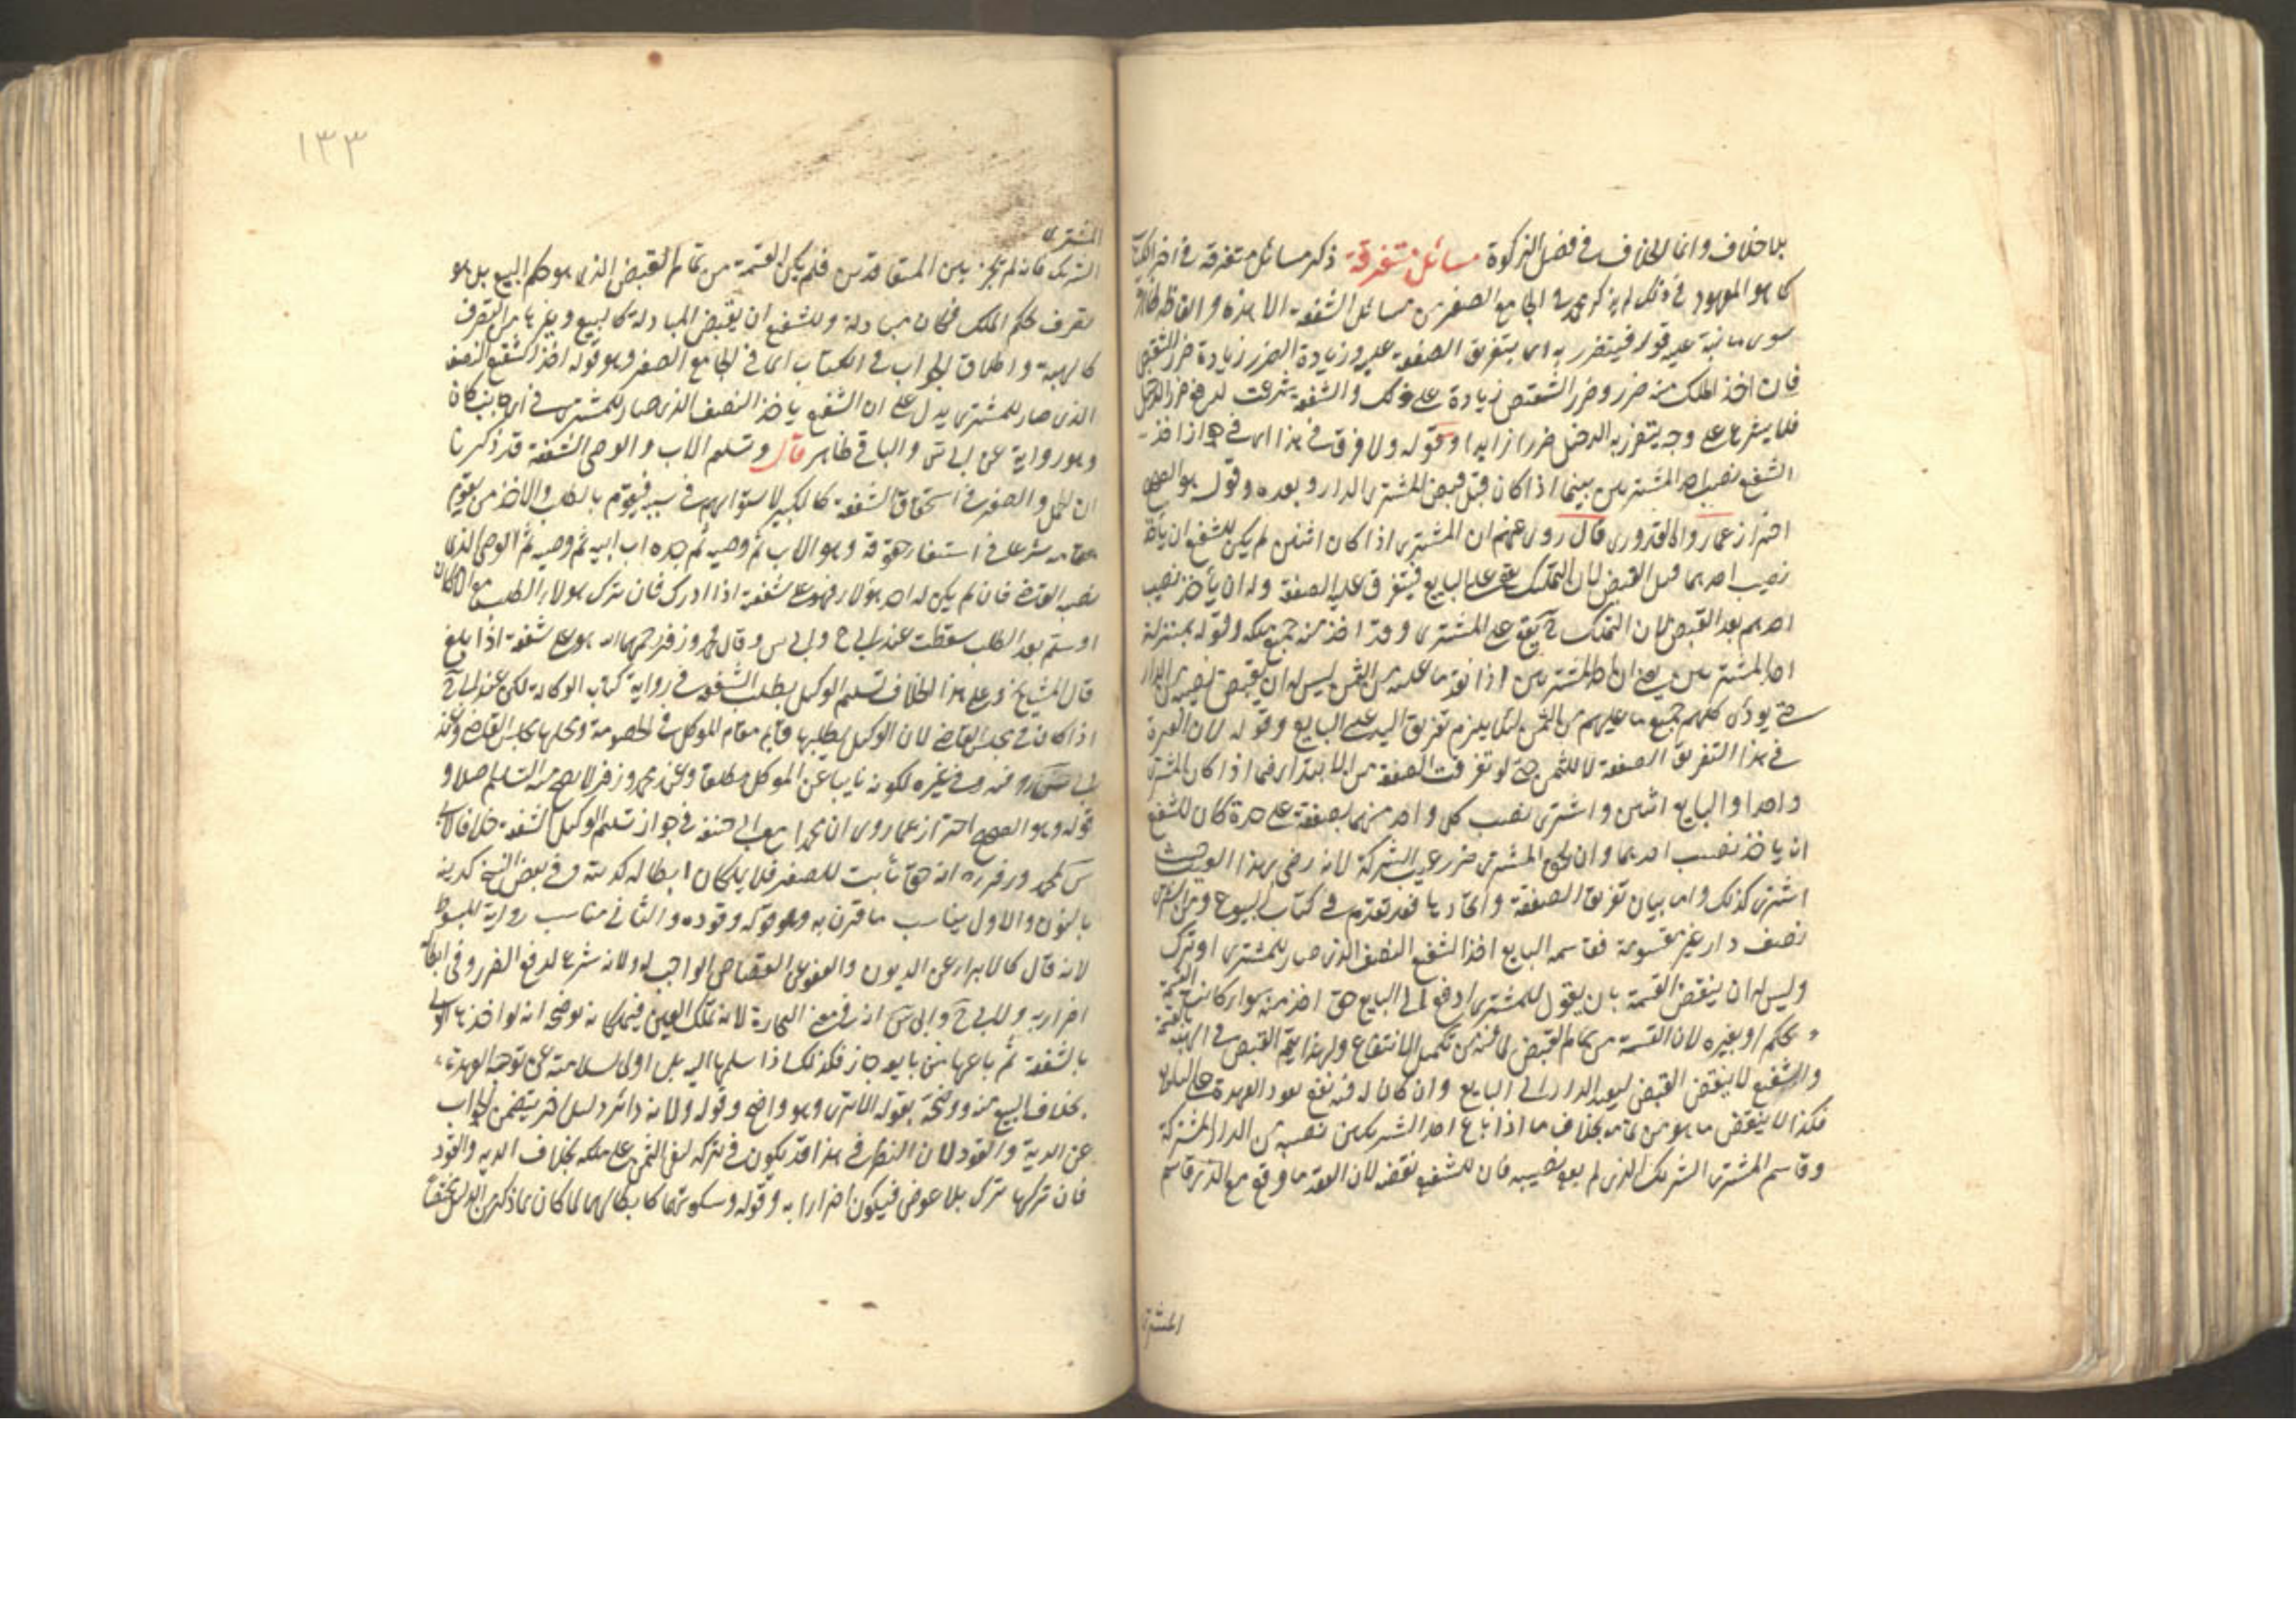 بلا خلاف وانما الخلاف في فصل الزكوة مسائل متفرقة ذكر مسائل متفرقة في آخر الكتاب
كما هو المعهود في ذلك لم يذكر محمد في الجامع الصغير من مسائل الشفعة الا هذه والفاظه ظاهرة
سوى ما ننبه عليه قوله فيتضرر به اى بتفريق الصفقة عليه وزيادة الضرر زيادة ضرر الشقص
فان اخذ الملك منه ضرر وضرر الشقص زيادة على ذلك والشفعة شرعت لدفع ضرر الدخيل
فلا يشرع على وجه يتضرر به الدخيل ضررا زايدا وقوله ولا فرق في هذا اى في جواز اخذ
الشفيع نصيب احد المشتريين بينما اذا كان قبل قبض المشترى الدار وبعده وقوله هو الصحيح
احتراز عما رواه القدورى قال روى عنهم ان المشترى اذا كان اثنين لم يكن للشفيع ان يأخذ
نصيب احدهما قبل القبض لان التملك يقع على البايع فيتفرق عليه الصفقة وله ان يأخذ نصيب
احدهم بعد القبض لان التملك ح يقع على المشترى وقد اخذ منه جميع ملكه وقوله بمنزلة
احد المشتريين يعنى ان احد المشتريين اذا نقد ما عليه من الثمن ليس له ان يقبض نصيبه من الدار
حتى يودى كلهم جميع ما عليهم من الثمن لئلا يلزم تفريق اليد على البايع وقوله لان العبرة
في هذا التفريق الصفقة لا للثمن حتى لو تفرقت الصفقة من الابتداء فيما اذا كان المشترى
واحدا والبايع اثنين واشترى نصيب كل واحد منهما بصفقة على حدة كان للشفيع
ان ياخذ نصيب احدهما وان لحق المشترى ضرر عيب الشركة لانه رضى بهذا العيب حيث
اشترى كذلك واما بيان تفريق الصفقة واتحادها فقد تقدم في كتاب البيوع ومن اشترى
نصف دار غير مقسومة فقاسمه البايع اخذ الشفيع النصف الذى صار للمشترى او ترك
وليس له ان ينقض القسمة بان يقول للمشترى ادفع الى البايع حتى اخذ منه سواء كانت القسمة
بحكم او بغيره لان القسمة من تمام القبض لما فيه من تكميل الانتفاع ولهذا يتم القبض في الهبة بالقسمة
والشفيع لا ينقض القبض ليعيد الدار الى البايع وان كان له فيه نفع بعود العهدة على البايع
فكذا لا ينقض ما هو من تمامه بخلاف ما اذا باع احد الشريكين نصيبه من الدار المشتركة
وقاسم المشترى الشريك الذى لم يبع نصيبه فان للشفيع نقضه لان العقد ما وقع مع الذى قاسم
المشترى
١٣٣
المشترى
الشريك فانه لم يجر بين المتعاقدين فلم يكن القسمة من تمام القبض الذى هو حكم البيع بل هو
تصرف بحكم الملك فكان مبادلة وللشفيع ان ينقض المبادلة كالبيع وغيرها من التصرف
كالهبة واطلاق الجواب في الكتاب اى في الجامع الصغير وهو قوله اخذ الشفيع النصف
الذى صار للمشترى يدل على ان الشفيع ياخذ النصف الذى صار للمشترى في اى جانب كان
وهو رواية عن ابى س والباقي ظاهر قال وتسليم الاب والوصى الشفعة قد ذكرنا
ان الحمل والصغير في استحقاق الشفعة كالكبير لاستوايهم في سببه فيقوم بالطلب والاخذ من يقوم
مقامه شرعا في استيفاء حقوقه وهو الاب ثم وصيه ثم جده اب ابيه ثم وصيه ثم الوصى الذى
نصبه القاضى فان لم يكن له احد هؤلاء فهو على شفعة اذا ادرك فان ترك هولاء الطلب مع الامكان
او سلم بعد الطلب سقطت عند ابى ح وابى س وقال محمد وزفر رحمهما الله هو على شفعة اذا بلغ
قال المشايخ وعلى هذا الخلاف تسليم الوكيل بطلب الشفعة في رواية كتاب الوكالة لكن عند ابى ح
اذا كان في مجلس القاضى لان الوكيل بطلبها قايم مقام الموكل في الخصومة ومحلها مجلس القاضى وعند
ابى س فيه وفي غيره لكونه نايبا عن الموكل مطلقا وعند محمد وزفر لا يصح منه التسليم اصلا و
قوله وهو الصحيح احتراز عما روى ان محمدا مع ابى حنيفة في جواز تسليم الوكيل الشفعة خلافا لابى
س لمحمد وزفر ره انه حق ثابت للصغير فلا يملكان ابطاله كديته وفي بعض النسخ كدينه
بالنون والاول يناسب ما قرن به وهو قوله وقوده والثانى مناسب رواية المبسوط
لانه قال كالابراء عن الديون والعفو عن القصاص الواجب له ولانه شرع لدفع الضرر وفى ابطاله
اضرار به ولابى ح وابى س انه في معنى التجارة لانه تملك العين فيملكانه توضحه انه لو اخذها
بالشفعة ثم باعها من بايعه جاز فكذلك اذا سلمها اليه بل اولى لسلامته عن توجه العهدة
بخلاف البيع منه ووضحه بقوله الا ترى وهو واضح وقوله ولانه دائر دليل اخر يتضمن الجواب
عن الدية والقود لان النظر في هذا قد يكون في تركه ليبقى الثمن على ملكه بخلاف الدية والقود
فان تركها ترك بلا عوض فيكون اضرارا به وقوله وسكوتهما كابطالهما لما كان ما ذكر من الدليل مختصا